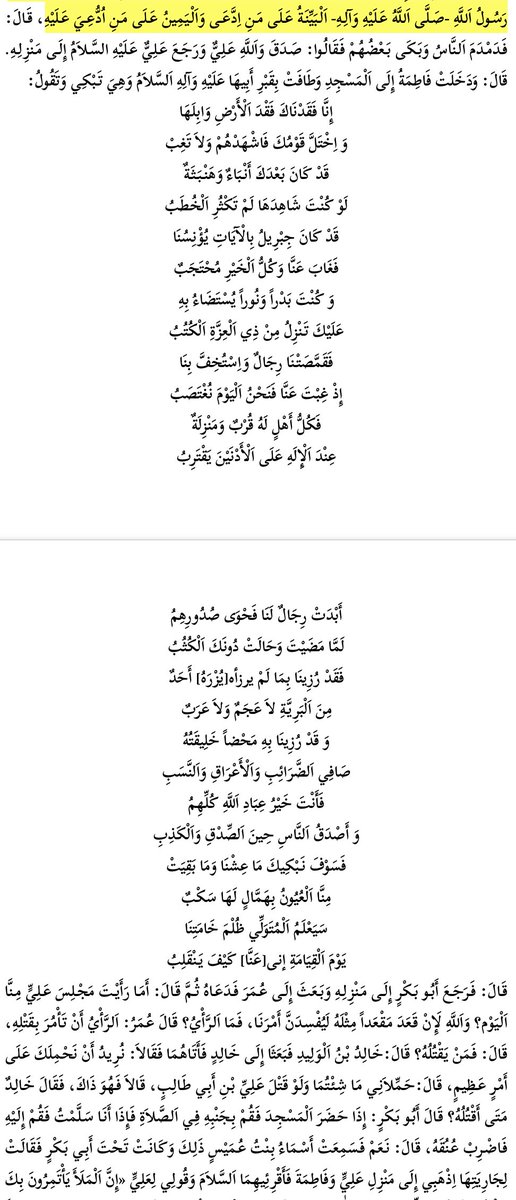 رَسُولُ اَللَّهِ -صَلَّى اَللَّهُ عَلَيْهِ وَآلِهِ- اَلْبَيِّنَةُ عَلَى مَنِ اِدَّعَى وَاَلْيَمِينُ عَلَى مَنِ اُدُّعِيَ عَلَيْهِ، قَالَ:
فَدَمْدَمَ اَلنَّاسُ وَبَكَى بَعْضُهُمْ فَقَالُوا: صَدَقَ وَاَللَّهِ عَلِيٌّ وَرَجَعَ عَلِيٌّ عَلَيْهِ اَلسَّلاَمُ إِلَى مَنْزِلِهِ.
قَالَ: وَدَخَلَتْ فَاطِمَةُ إِلَى اَلْمَسْجِدِ وَطَافَتْ بِقَبْرِ أَبِيهَا عَلَيْهِ وَآلِهِ اَلسَّلاَمُ وَهِيَ تَبْكِي وَتَقُولُ:
إِنَّا فَقَدْنَاكَ فَقْدَ اَلْأَرْضِ وَابِلَهَا
وَ اِخْتَلَّ قَوْمُكَ فَاشْهَدْهُمْ وَلاَ تَغِبْ
قَدْ كَانَ بَعْدَكَ أَنْبَاءٌ وَهَنْبَثَةٌ
لَوْ كُنْتَ شَاهِدَهَا لَمْ تَكْثُرِ اَلْخُطَبُ
قَدْ كَانَ جِبْرِيلُ بِالْآيَاتِ يُؤْنِسُنَا
فَغَابَ عَنَّا وَكُلُّ اَلْخَيْرِ مُحْتَجَبٌ
وَ كُنْتَ بَدْراً وَنُوراً يُسْتَضَاءُ بِهِ
عَلَيْكَ تَنْزِلُ مِنْ ذِي اَلْعِزَّةِ اَلْكُتُبُ
فَقَمَّصَتْنَا رِجَالٌ وَاِسْتُخِفَّ بِنَا
إِذْ غِبْتَ عَنَّا فَنَحْنُ اَلْيَوْمَ نُغْتَصَبُ
فَكُلُّ أَهْلٍ لَهُ قُرْبٌ وَمَنْزِلَةٌ
عِنْدَ اَلْإِلَهِ عَلَى اَلْأَدْنَيْنَ يَقْتَرِبُ
أَبْدَتْ رِجَالٌ لَنَا فَحْوَى صُدُورِهِمُ
لَمَّا مَضَيْتَ وَحَالَتْ دُونَكَ اَلْكُثُبُ
فَقَدْ رُزِينَا بِمَا لَمْ يرزأه[يُرْزَهُ] أَحَدٌ
مِنَ اَلْبَرِيَّةِ لاَ عَجَمٌ وَلاَ عَرَبٌ
وَ قَدْ رُزِينَا بِهِ مَحْضاً خَلِيقَتُهُ
صَافِي اَلضَّرَائِبِ وَاَلْأَعْرَاقِ وَاَلنَّسَبِ
فَأَنْتَ خَيْرُ عِبَادِ اَللَّهِ كُلِّهِمُ
وَ أَصْدَقُ اَلنَّاسِ حِينَ اَلصِّدْقِ وَاَلْكَذِبِ
فَسَوْفَ نَبْكِيكَ مَا عِشْنَا وَمَا بَقِيَتْ
مِنَّا اَلْعُيُونُ بِهَمَّالٍ لَهَا سَكْبٌ
سَيَعْلَمُ اَلْمُتَوَلِّي ظُلْمَ خَامَتِنَا
يَوْمَ اَلْقِيَامَةِ إنى[عَنَّا] كَيْفَ يَنْقَلِبُ
قَالَ: فَرَجَعَ أَبُو بَكْرٍ إِلَى مَنْزِلِهِ وَبَعَثَ إِلَى عُمَرَ فَدَعَاهُ ثُمَّ قَالَ: أَمَا رَأَيْتَ مَجْلِسَ عَلِيٍّ مِنَّا
اَلْيَوْمَ؟ وَاَللَّهِ لَإِنْ قَعَدَ مَقْعَداً مِثْلَهُ لَيُفْسِدَنَّ أَمْرَنَا، فَمَا اَلرَّأْيُ؟ قَالَ عُمَرُ: اَلرَّأْيُ أَنْ تَأْمُرَ بِقَتْلِهِ،
قَالَ: فَمَنْ يَقْتُلُهُ؟ قَالَ:خَالِدُ بْنُ اَلْوَلِيدِ فَبَعَثَا إِلَى خَالِدٍ فَأَتَاهُمَا فَقَالاَ: نُرِيدُ أَنْ نَحْمِلَكَ عَلَى
أَمْرٍ عَظِيمٍ، قَالَ:حَمِّلاَنِي مَا شِئْتُمَا وَلَوْ قَتْلَ عَلِيِّ بْنِ أَبِي طَالِبٍ، قَالاَ فَهُوَ ذَاكَ، فَقَالَ خَالِدٌ
مَتَى أَقْتُلُهُ؟ قَالَ أَبُو بَكْرٍ: إِذَا حَضَرَ اَلْمَسْجِدَ فَقُمْ بِجَنْبِهِ فِي اَلصَّلاَةِ فَإِذَا أَنَا سَلَّمْتُ فَقُمْ إِلَيْهِ
فَاضْرِبْ عُنُقَهُ، قَالَ: نَعَمْ فَسَمِعَتْ أَسْمَاءُ بِنْتُ عُمَيْسٍ ذَلِكَ وَكَانَتْ تَحْتَ أَبِي بَكْرٍ فَقَالَتْ
لِجَارِيَتِهَا اِذْهَبِي إِلَى مَنْزِلِ عَلِيٍّ وَفَاطِمَةَ فَأَقْرِئِيهِمَا اَلسَّلاَمَ وَقُولِي لِعَلِيٍّ «إِنَّ اَلْمَلَأَ يَأْتَمِرُونَ بِكَ